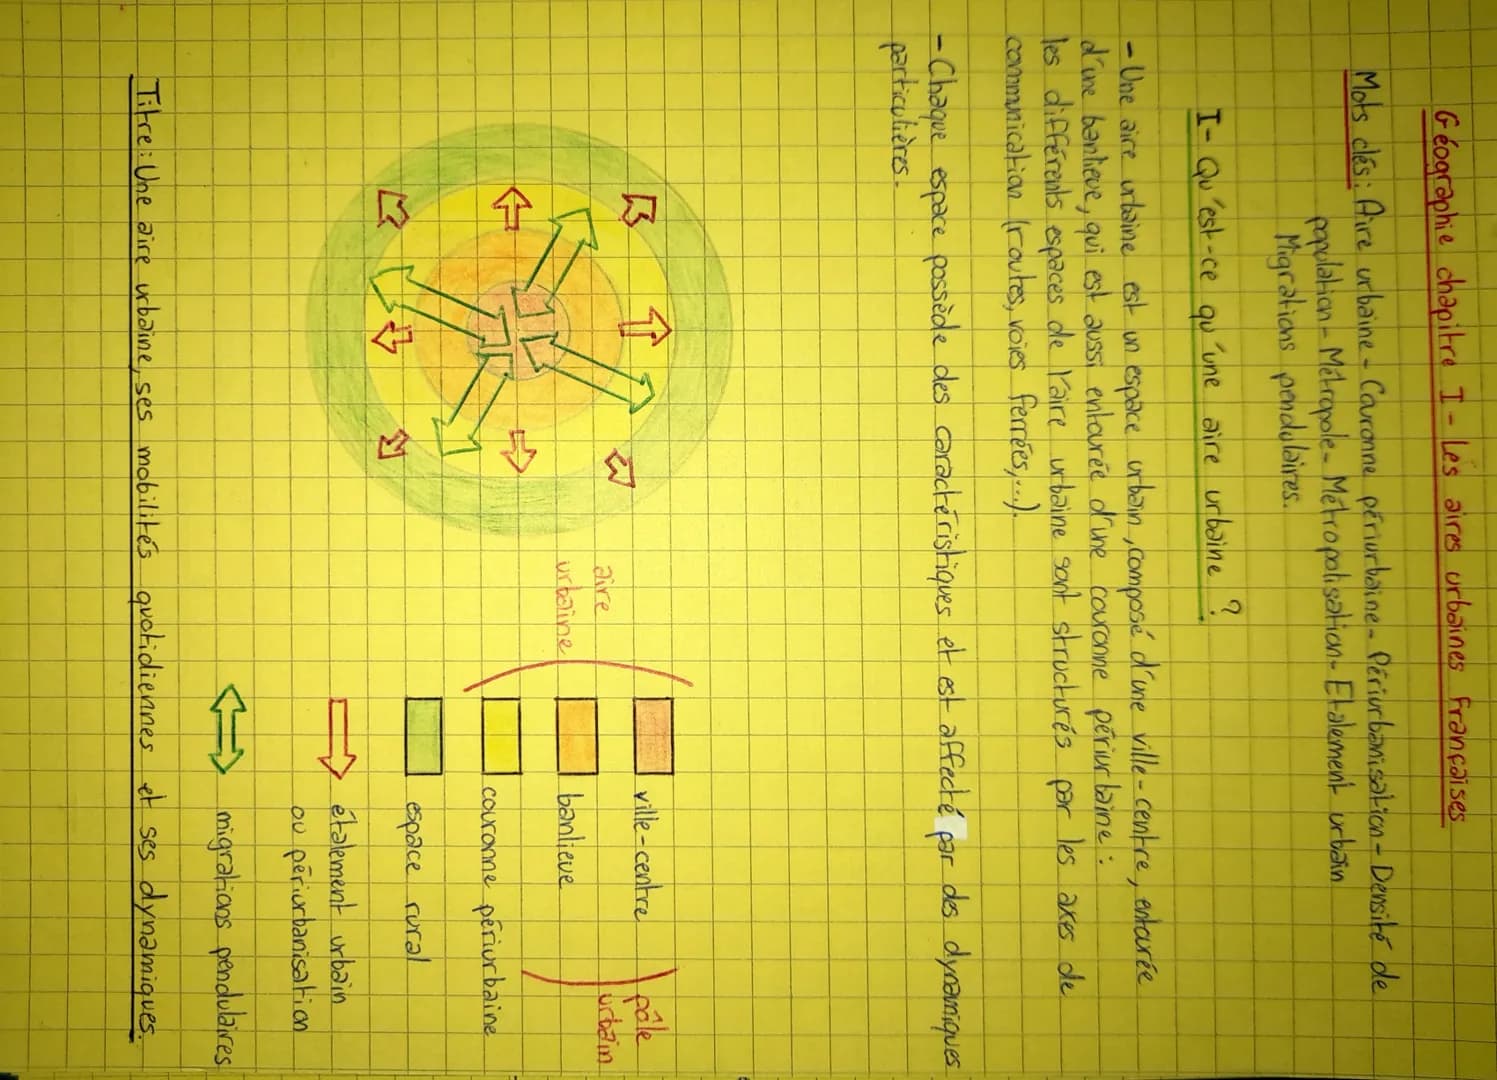 Géographie chapitre I - Les aires urbaines françaises
Mots clés: Aire urbaine - Couronne périurbaine - Périurbanisation - Densité de
population - Métropole - Métropolisation - Etalement urbain
Migrations pendulaires.
I - Qu'est-ce qu'une aire urbaine ?
- Une aire urbaine est un espace urbain, composé d'une ville-centre, entourée
d'une banlieue, qui est aussi entourée d'une couronne périurbaine :
les différents espaces de l'aire urbaine sont structurés par les axes de
communication (routes, voies ferrées,...).
- Chaque espace possède des caractéristiques et est affecté par des dynamiques
particulières.
aire
urbaine
ville-centre
banlieue
pôle
urbain
couronne périurbaine
espace rural
étalement urbain
ou périurbanisation
migrations pendulaires
Titre: Une aire urbaine, ses mobilités quotidiennes et ses dynamiques.